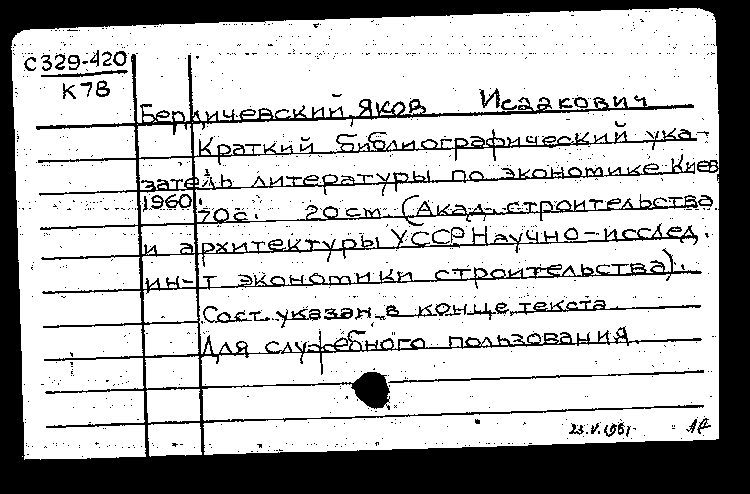 С329-420
К78
Бердичевский, Яков Исаакович
Краткий библиографический ука-
затель литературы по экономике Киев
1960.
70с. 20см (Акад. строительства
и архитектуры УССР Научно-исслед.
ин-т экономики строительства).
Сост. указан в конце текста
Для служебного пользования.
23.V.1961